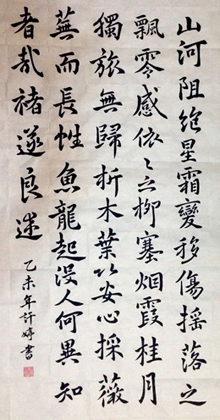 山河阻絶星霜變移傷摇落之
飄零感依〻之柳塞烟霞桂月
獨旅無歸折木葉以安心採薇
蕪而長性魚龍起没人何異知
者哉褚遂良述
乙未年許婷書